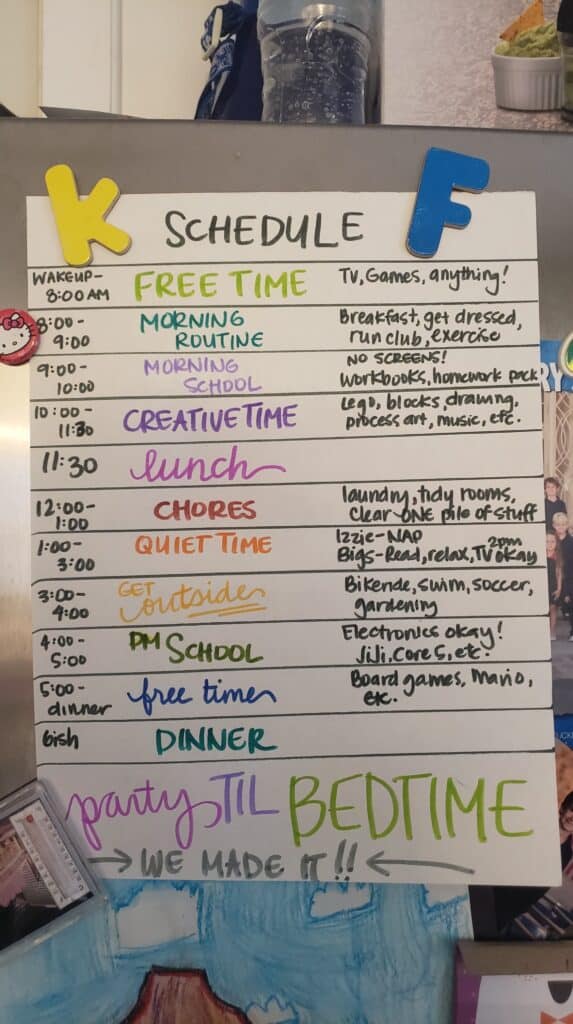 K
F
SCHEDULE
WAKEUP- FREE TIME TV, Games, anything!
8:00 AM
8:00- MORNING Breakfast, get dressed,
9:00 ROUTINE run club, exercise
9:00- MORNING NO SCREENS!
10:00 SCHOOL workbooks, homework pack
10:00- CREATIVE TIME Lego, blocks, drawing,
11:30 process art, music, etc.
11:30 lunch
12:00- CHORES laundry, tidy rooms,
1:00 clear ONE pile of stuff
1:00- QUIET TIME Izzie-NAP 2pm
3:00 Bigs-Read, relax, TV okay
3:00- GET Bikeride, swim, soccer,
4:00 outside gardening
4:00- PM SCHOOL Electronics okay!
5:00 JiJi, Core 5, etc.
5:00- free time Board games, Mario,
dinner etc.
6ish DINNER
party TIL BEDTIME
→ WE MADE IT!! ←
RY